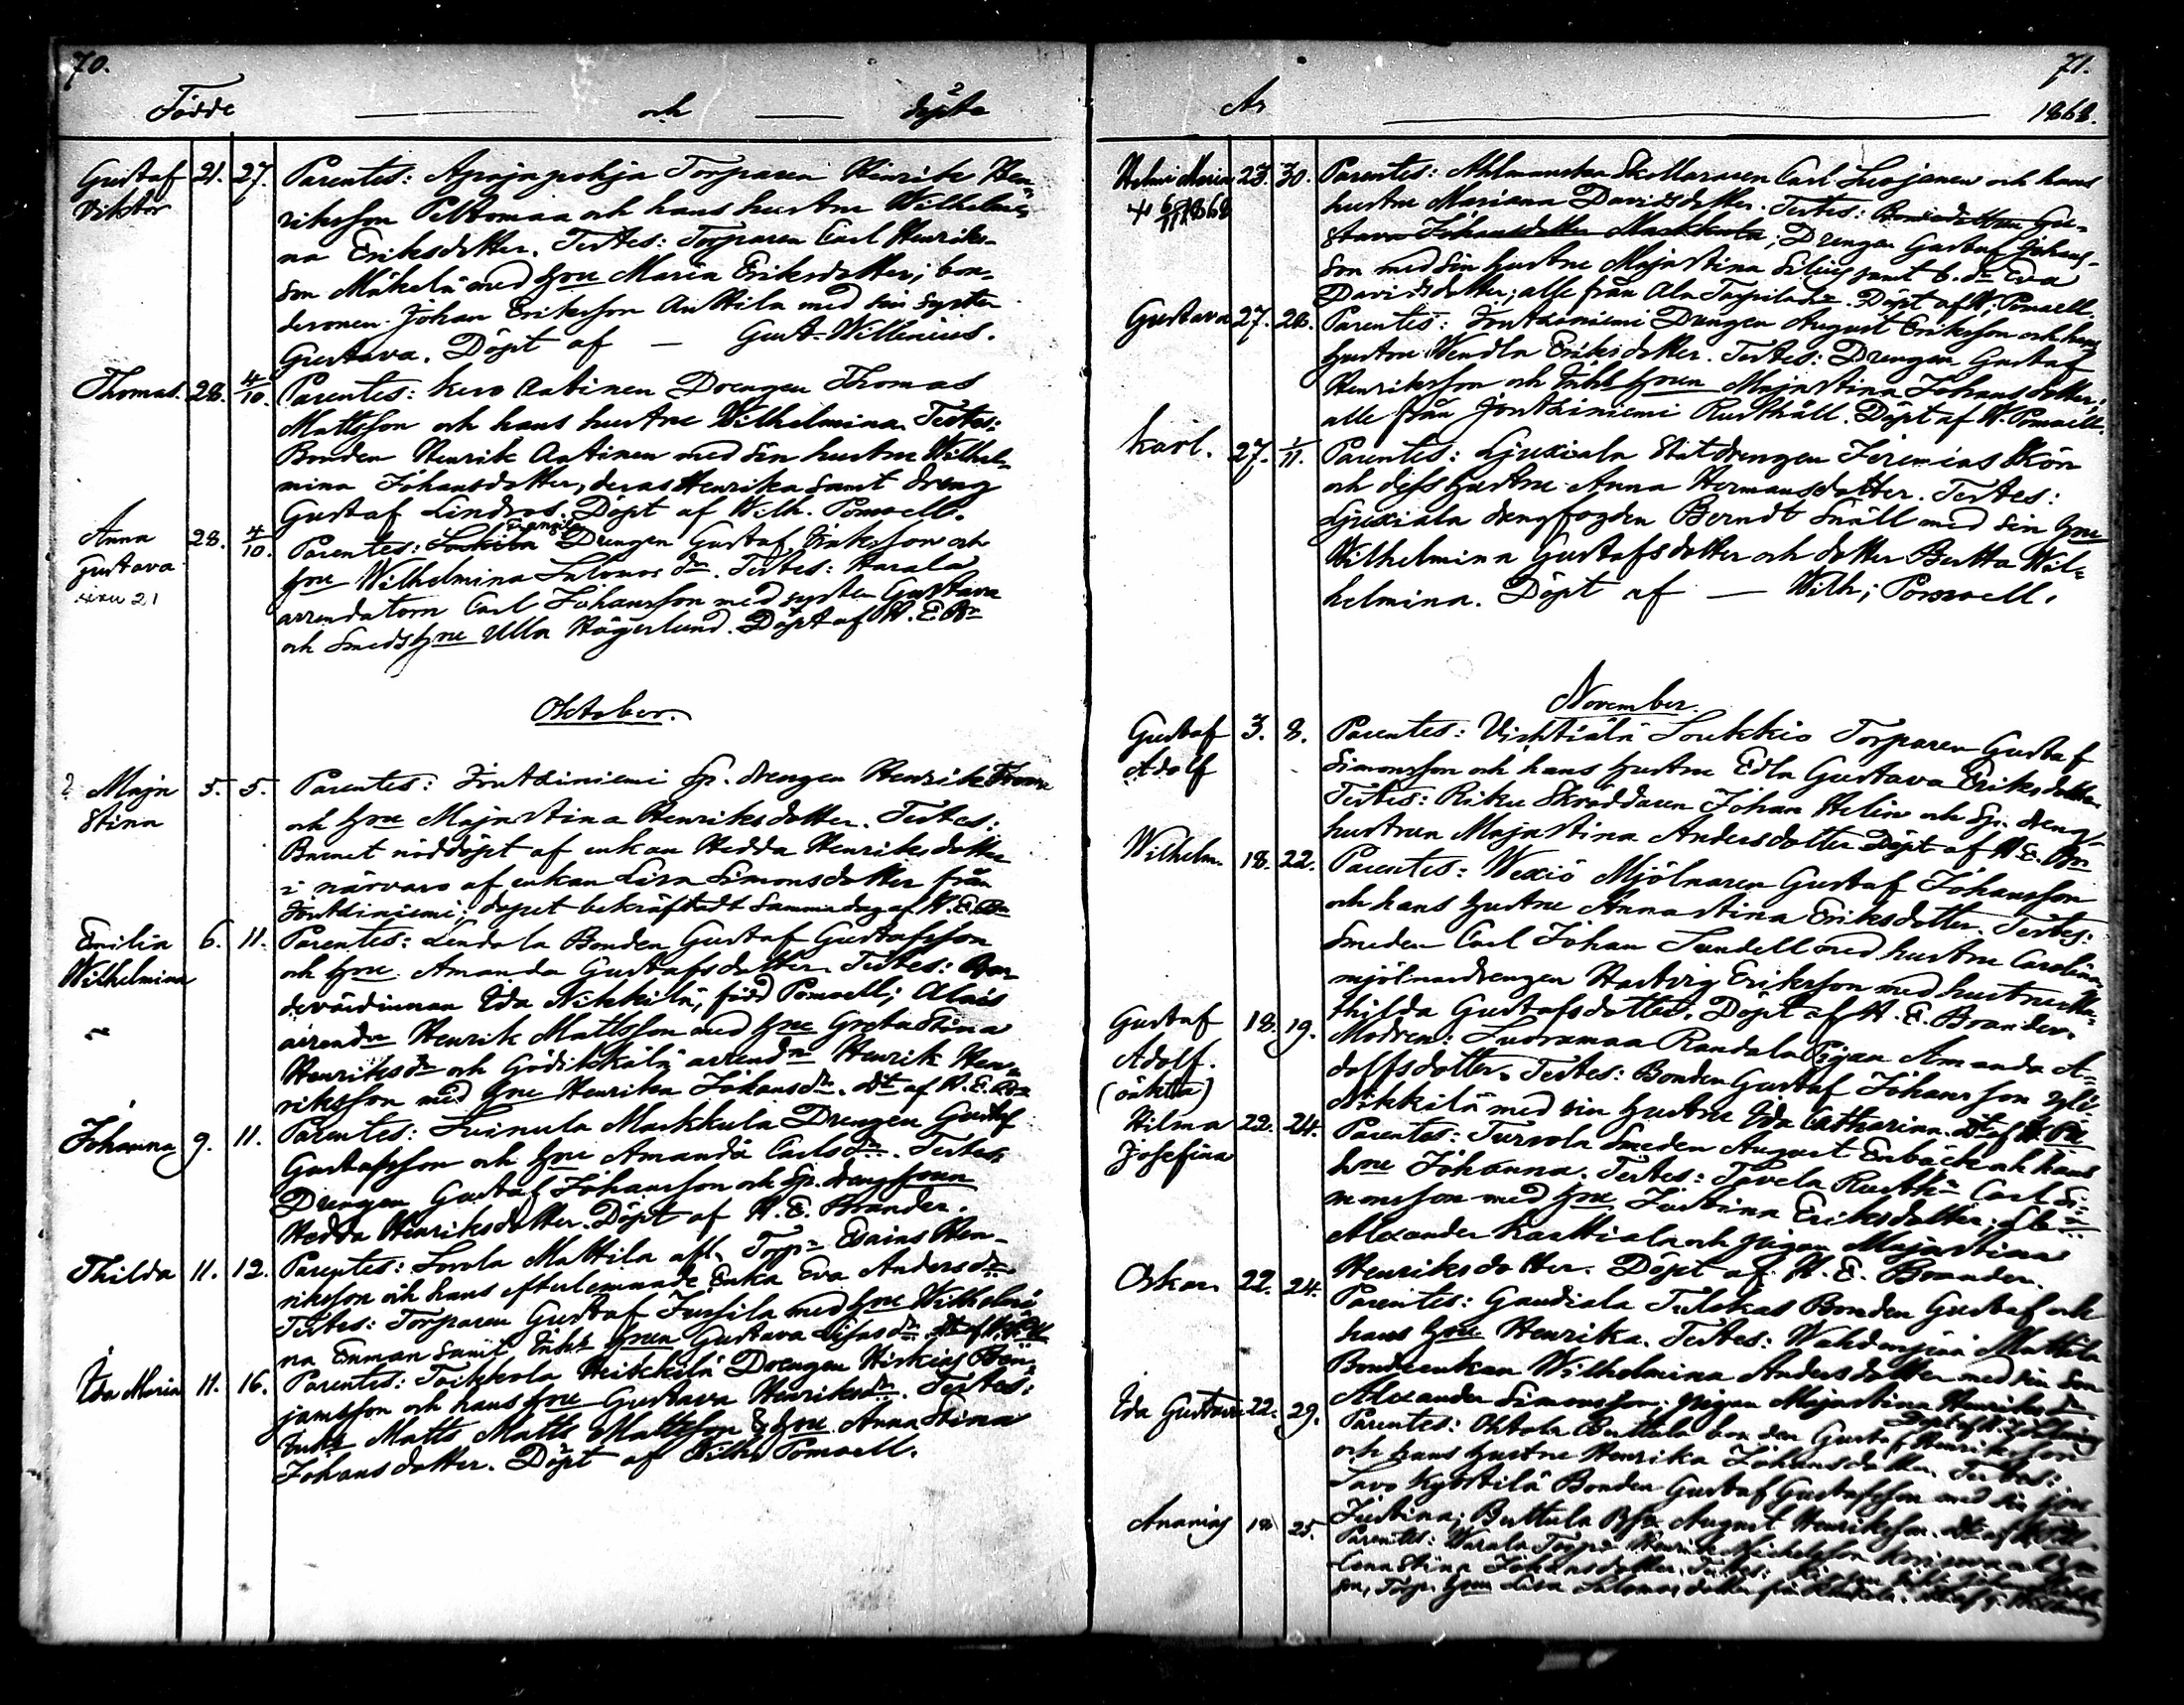 70.
Födde och döpte
Gustaf Viktor 21. 27. Parentes: Apajapohja Torparen Henrik Hen-
riksson Peltomaa och hans hustru Wilhelmi-
na Eriksdotter. Testes: Torparen Carl Henriks-
son Mäkelä med hru Maria Eriksdotter; bon-
desonen Johan Eriksson Anttila med sin syster
Gustava. Döpt af — Gust. Willenius.
Thomas. 28. 4/10. Parentes: Drengen Thomas
Mattsson och hans hustru Wilhelmina. Testes:
Bonden Henrik Aatinen med sin hustru Wilhel-
mina Johansdotter, deras Henrika samt dreng
Gustaf Lindros. Döpt af Wilh. Pomoell.
Anna Gustava 28. 4/10. Parentes: Drengen Gustaf Eriksson och
hru Wilhelmina Salomos dr. Testes: Harala
arrendatorn Carl Johansson med syster Gustava
och Smeds hru Ulla Högerlund. Döpt af H. E. Br
Oktober.
? Maja Stina 5. 5. Parentes: Jontziniemi Sp. drengen Henrik
och hru Majastina Henriksdotter. Testes:
Barnet nöddöpt af enkan Hedda Henriksdotter
i närvaro af enkan Lisa Simonsdotter från
Jontziniemi; dopet bekräftadt samma dag af H. E. Br
Emilia Wilhelmina 6. 11. Parentes: Lendala Bonden Gustaf Gustafsson
och hru Amanda Gustafsdotter. Testes: Bon-
devärdinnan Ida Nikkilä, född Pomoell; Alais
arrendn Henrik Mattsson med hru Greta Stina
Henriksdr och Gödikkilä arrendn Henrik Hen-
riksson med hru Henrika Johansdr. Dt af H. E. Br
Johanna 9. 11. Parentes: Luinula Markkula Drengen Gustaf
Gustafsson och hru Amanda Carlsdr. Testes:
Drengen Gustaf Johansson och Sp. dreng hrun
Hedda Henriksdotter. Döpt af H. E. Brander.
Thilda 11. 12. Parentes: Mattila afl. Torpn Esaias Hen-
riksson och hans efterlemnade Enka Eva Andersdr
Testes: Torparen Gustaf Jussila med hru Wilhelmi-
na Enman samt Inhs hrun Gustava
Ida Maria 11. 16. Parentes: Toikkola Heikkilä Drengen Hiskias Ben-
jamsson och hans hru Gustava Henriksdr. Testes:
Inhs Matts Matts Mattsson & hru Anna Stina
Johansdotter. Döpt af Wilh. Pomoell.
71.
År 1868.
Helmi Maria 23. 30. Parentes: Ahlmanska Skolläraren Carl Leojanen och hans
hustru Mariana Davidsdotter. Testes: Gu-
stava Johansdotter Markkula; Drengen Gustaf Johans-
son med sin hustru Majastina samt b. dr Eva
Davidsdotter; alle från Döpt af W. Pomoell.
Gustava 27. 28. Parentes: Jontziniemi Drengen August Eriksson och hans
hustru Wendla Eriksdotter. Testes: Drengen Gustaf
Henriksson och Inhs hrun Majastina Johansdotter;
alle från Jontziniemi Rusthåll. Döpt af W. Pomoell.
Karl. 27. 1/11. Parentes: Ljuxiala Statdrengen Jeremias Skön
och dess hustru Anna Hermansdotter. Testes:
Ljuxiala drengfogden Berndt Snäll med sin hru
Wilhelmina Gustafsdotter och dotter Bertta Wil-
helmina. Döpt af — Wilh; Pomoell.
November.
Gustaf Adolf 3. 8. Parentes: Vishtiälä Soukkio Torparen Gustaf
Simonsson och hans hustru Edla Gustava Eriksdotter
Testes: Riku Skräddaren Johan Helin och Sp. dreng-
hustrun Majastina Andersdotter Döpt af H. E. Br
Wilhelm 18. 22. Parentes: Wexiö Mjölnaren Gustaf Johansson
och hans hustru Annastina Eriksdotter. Testes:
Smeden Carl Johan Sundell med hustru Carolina
mjölnardrengen Hartvig Eriksson med hustru Ma-
thilda Gustafsdotter. Döpt af H. E. Brander.
Gustaf Adolf. (oäkta) 18. 19. Modren: Randala Pigan Amanda A-
dolfsdotter. Testes: Bonden Gustaf Johansson
Nikkilä med sin hustru Ida Catharina.
Hilma Josefina 22. 24. Parentes: Tursola Smeden August Enbäck och hans
hru Johanna. Testes: Tavela Rusth. Carl Si-
monsson med hru Justina Eriksdotter;
Alexander Kaittiala och pigan Majastina
Henriksdotter. Döpt af H. E. Brander.
Oskar 22. 24. Parentes: Gaudiala Tulokas Bonden Gustaf och
hans hru Henrika. Testes: Mattila
Bondeenkan Wilhelmina Andersdotter med sin son
Alexander Simonsson; pigan Majastina Henriksdr
Ida Gustava 22. 29. Parentes: Ohtola Buttala bonden Gustaf Henriksson
och hans hustru Henrika Johansdotter. Testes:
Savo Kyöstilä Bonden Gustaf Gustafsson med sin hru
Justina; Buttula August Henriksson.
Ananias 18 25. Parentes: Warala Torpn Henrik Michelsson
Lena Stina Johansdotter. Testes:
Torp. hrun Lisa Salomos dotter från